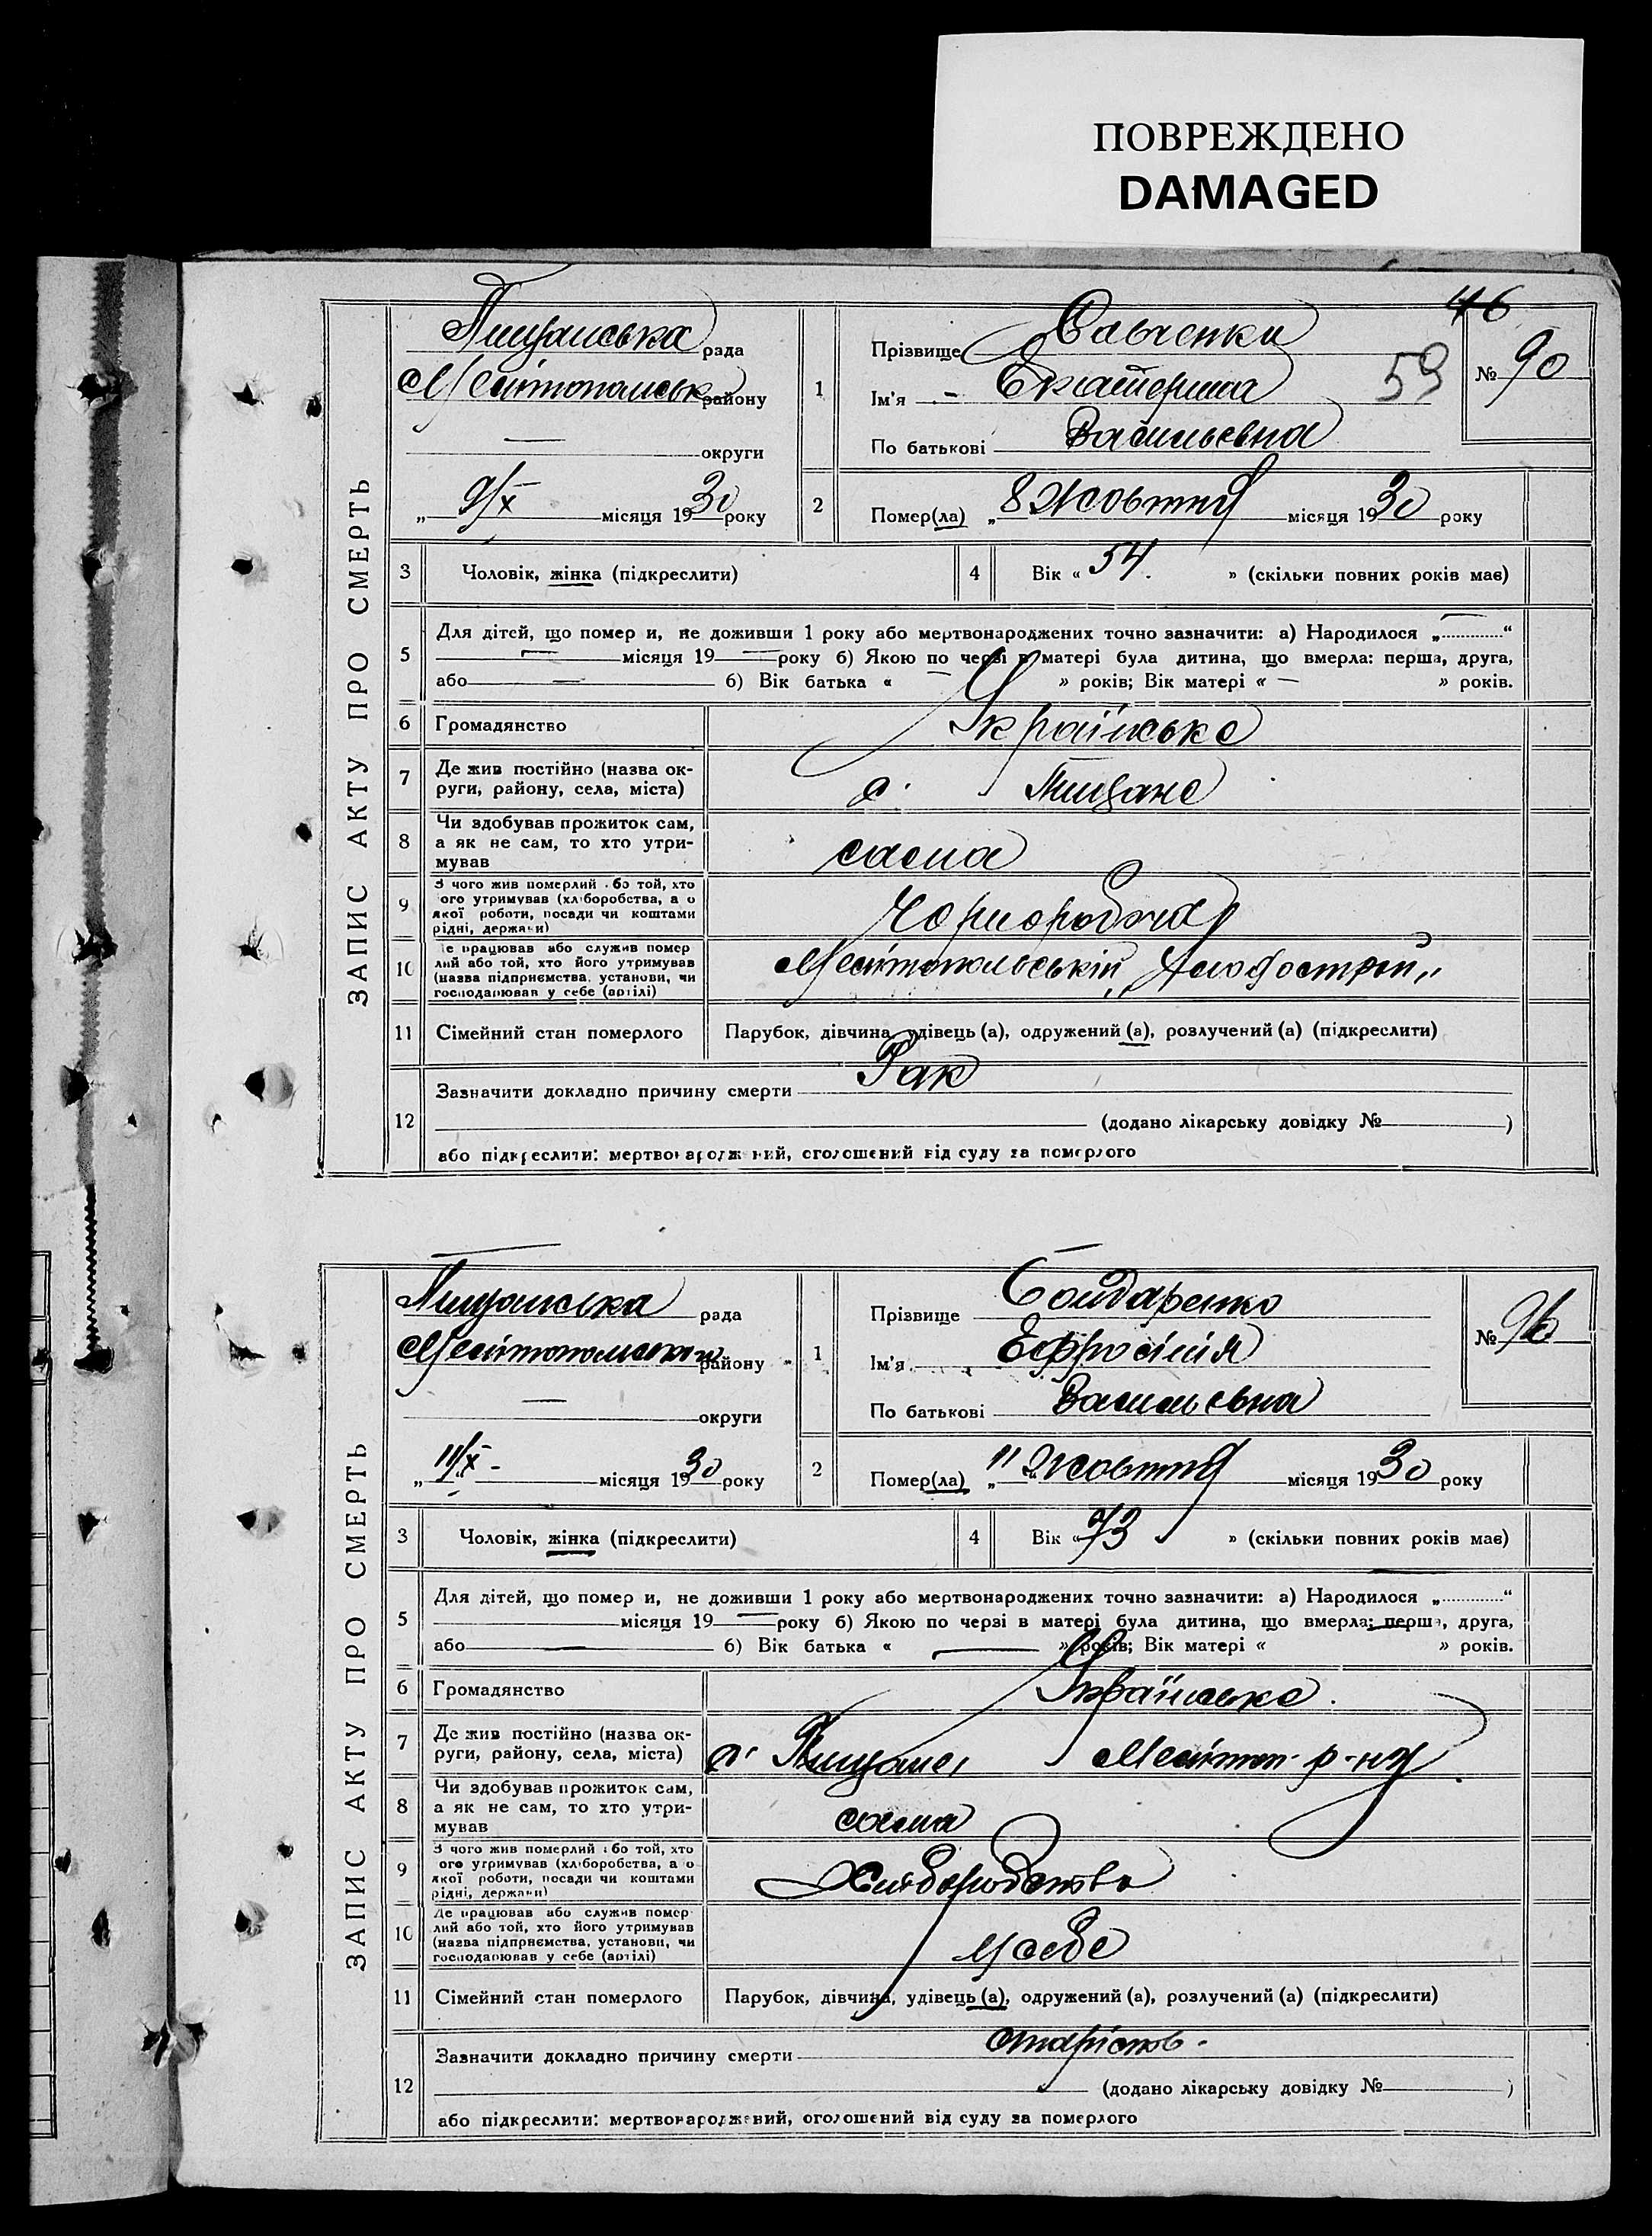 ПОВРЕЖДЕНО
DAMAGED
46
59
ЗАПИС АКТУ ПРО СМЕРТЬ
Піщанська рада
району
— округи
„ 9/X місяця 1930 року
1
Прізвище
Ім'я Екатерина
По батькові Васильевна
№ 90
2
Помер(ла) „ 8 Жовтня місяця 1930 року
3 Чоловік, жінка (підкреслити)
4 Вік « 54. » (скільки повних років має)
5 Для дітей, що помер и, не доживши 1 року або мертвонароджених точно зазначити: а) Народилося „ — “
— місяця 19 — року б) Якою по черзі в матері була дитина, що вмерла: перша, друга,
або — 6) Вік батька « — » років; Вік матері « — » років.
6 Громадянство Українське
7 Де жив постійно (назва ок-
руги, району, села, міста) с. Піщане
8 Чи здобував прожиток сам,
а як не сам, то хто утри-
мував
сама
9 З чого жив померлий або той, хто
ого утримував (хліборобства, а о
якої роботи, посади чи коштами
рідні, держави)
Чорноробча
10 Де працював або служив помер
лий або той, хто його утримував
(назва підприємства, установи, чи
господарював у себе (артілі)
11 Сімейний стан померлого Парубок, дівчина, удівець (а), одружений (а), розлучений (а) (підкреслити)
12 Зазначити докладно причину смерти Рак
(додано лікарську довідку № )
або підкреслити: мертвонароджений, оголошений від суду за померлого
ЗАПИС АКТУ ПРО СМЕРТЬ
Піщанська рада
району
— округи
„ 11/X - місяця 1930 року
1
Прізвище Бондаренко
Ім'я Ефросінія
По батькові Васильевна
№
2
Помер(ла) „ 11 Жовтня місяця 1930 року
3 Чоловік, жінка (підкреслити)
4 Вік « 73 » (скільки повних років має)
5 Для дітей, що помер и, не доживши 1 року або мертвонароджених точно зазначити: а) Народилося „ — “
місяця 19 — року б) Якою по черзі в матері була дитина, що вмерла: перша, друга,
або — 6) Вік батька « — » років; Вік матері « » років.
6 Громадянство Українське.
7 Де жив постійно (назва ок-
руги, району, села, міста) с. Піщане, Мелітоп. р-ну
8 Чи здобував прожиток сам,
а як не сам, то хто утри-
мував
сама
9 З чого жив померлий або той, хто
ого утримував (хліборобства, а о
якої роботи, посади чи коштами
рідні, держави)
Хліборобство
10 Де працював або служив помер
лий або той, хто його утримував
(назва підприємства, установи, чи
господарював у себе (артілі)
У себе
11 Сімейний стан померлого Парубок, дівчина, удівець (а), одружений (а), розлучений (а) (підкреслити)
12 Зазначити докладно причину смерти старість -
(додано лікарську довідку № )
або підкреслити: мертвонароджений, оголошений від суду за померлого